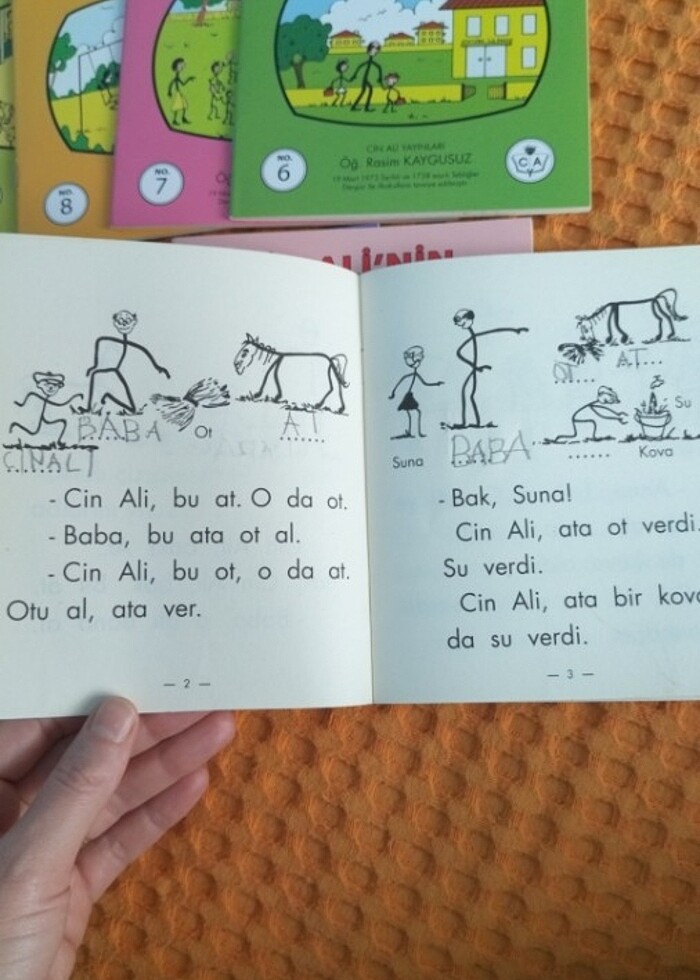 NO.
8
NO.
7
NO.
6
CİN ALİ YAYINLARI
Öğ. Rasim KAYGUSUZ
C A
ALİ'NİN
BABA
Ot
AT
CİNALİ
- Cin Ali, bu at. O da ot.
- Baba, bu ata ot al.
- Cin Ali, bu ot, o da at.
Otu al, ata ver.
— 2 —
OT...
AT...
Su
Suna
BABA
......
Kova
- Bak, Suna!
Cin Ali, ata ot verdi.
Su verdi.
Cin Ali, ata bir kova
da su verdi.
— 3 —